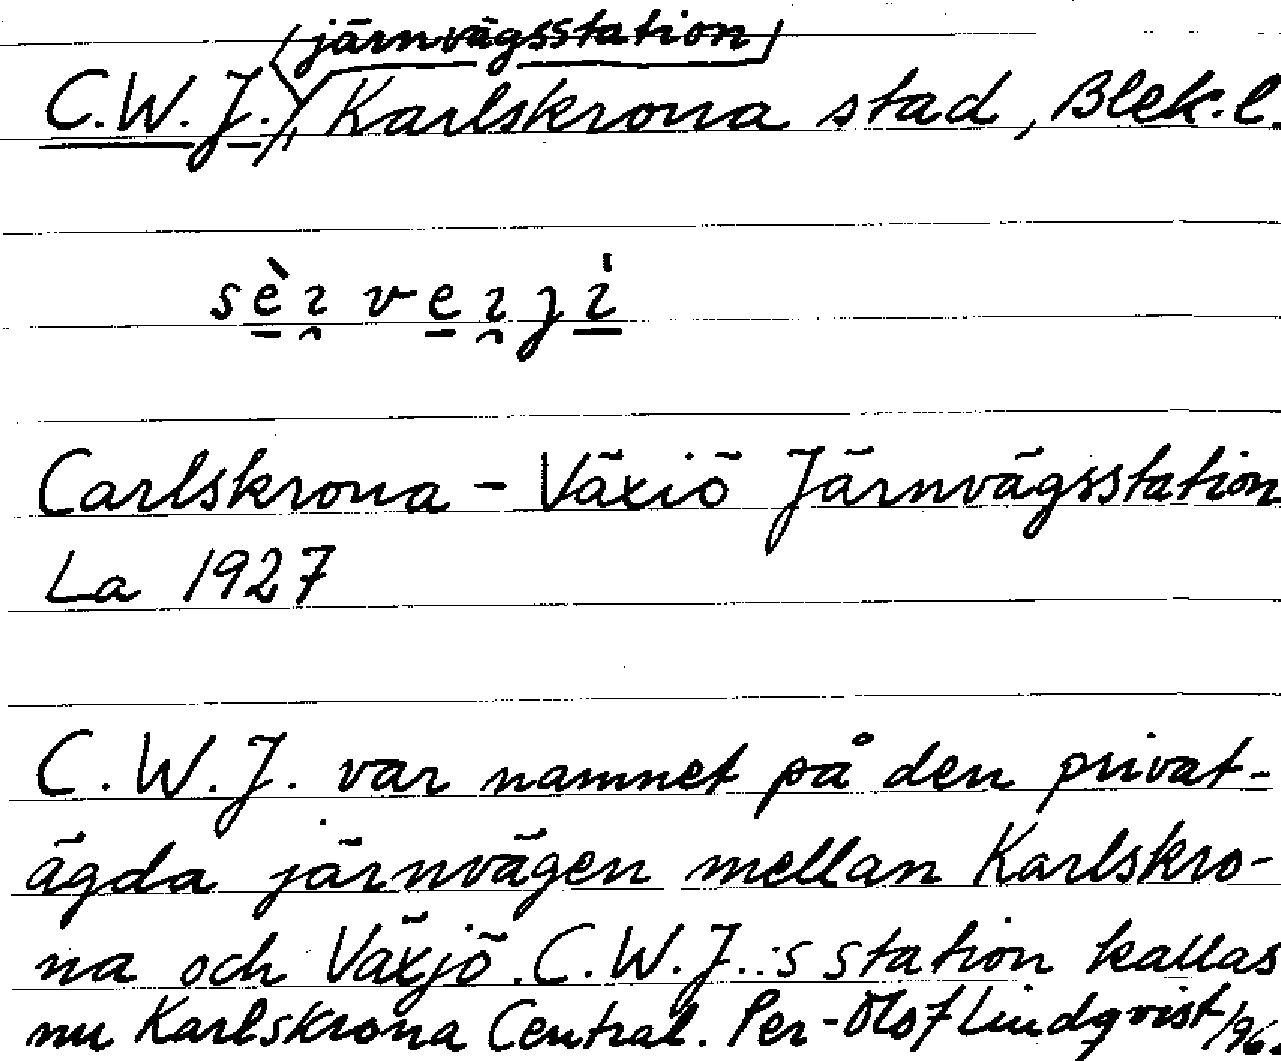 järnvägsstation
C.W.J., Karlskrona stad, Blek. l.
Carlskrona - Växiö Järnvägsstation
La 1927
C.W.J. var namnet på den privat-
ägda järnvägen mellan Karlskro-
na och Växjö. C.W.J.:s station kallas
nu Karlskrona Central. Per-Olof Lindqvist/96.